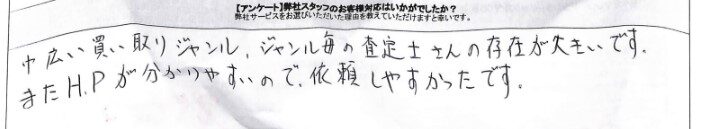 【アンケート】弊社スタッフのお客様対応はいかがでしたか？
弊社サービスをお選びいただいた理由を教えていただけますと幸いです。
巾広い買い取りジャンル、ジャンル毎の査定士さんの存在が大きいです。
またH.Pが分かりやすいので、依頼しやすかったです。